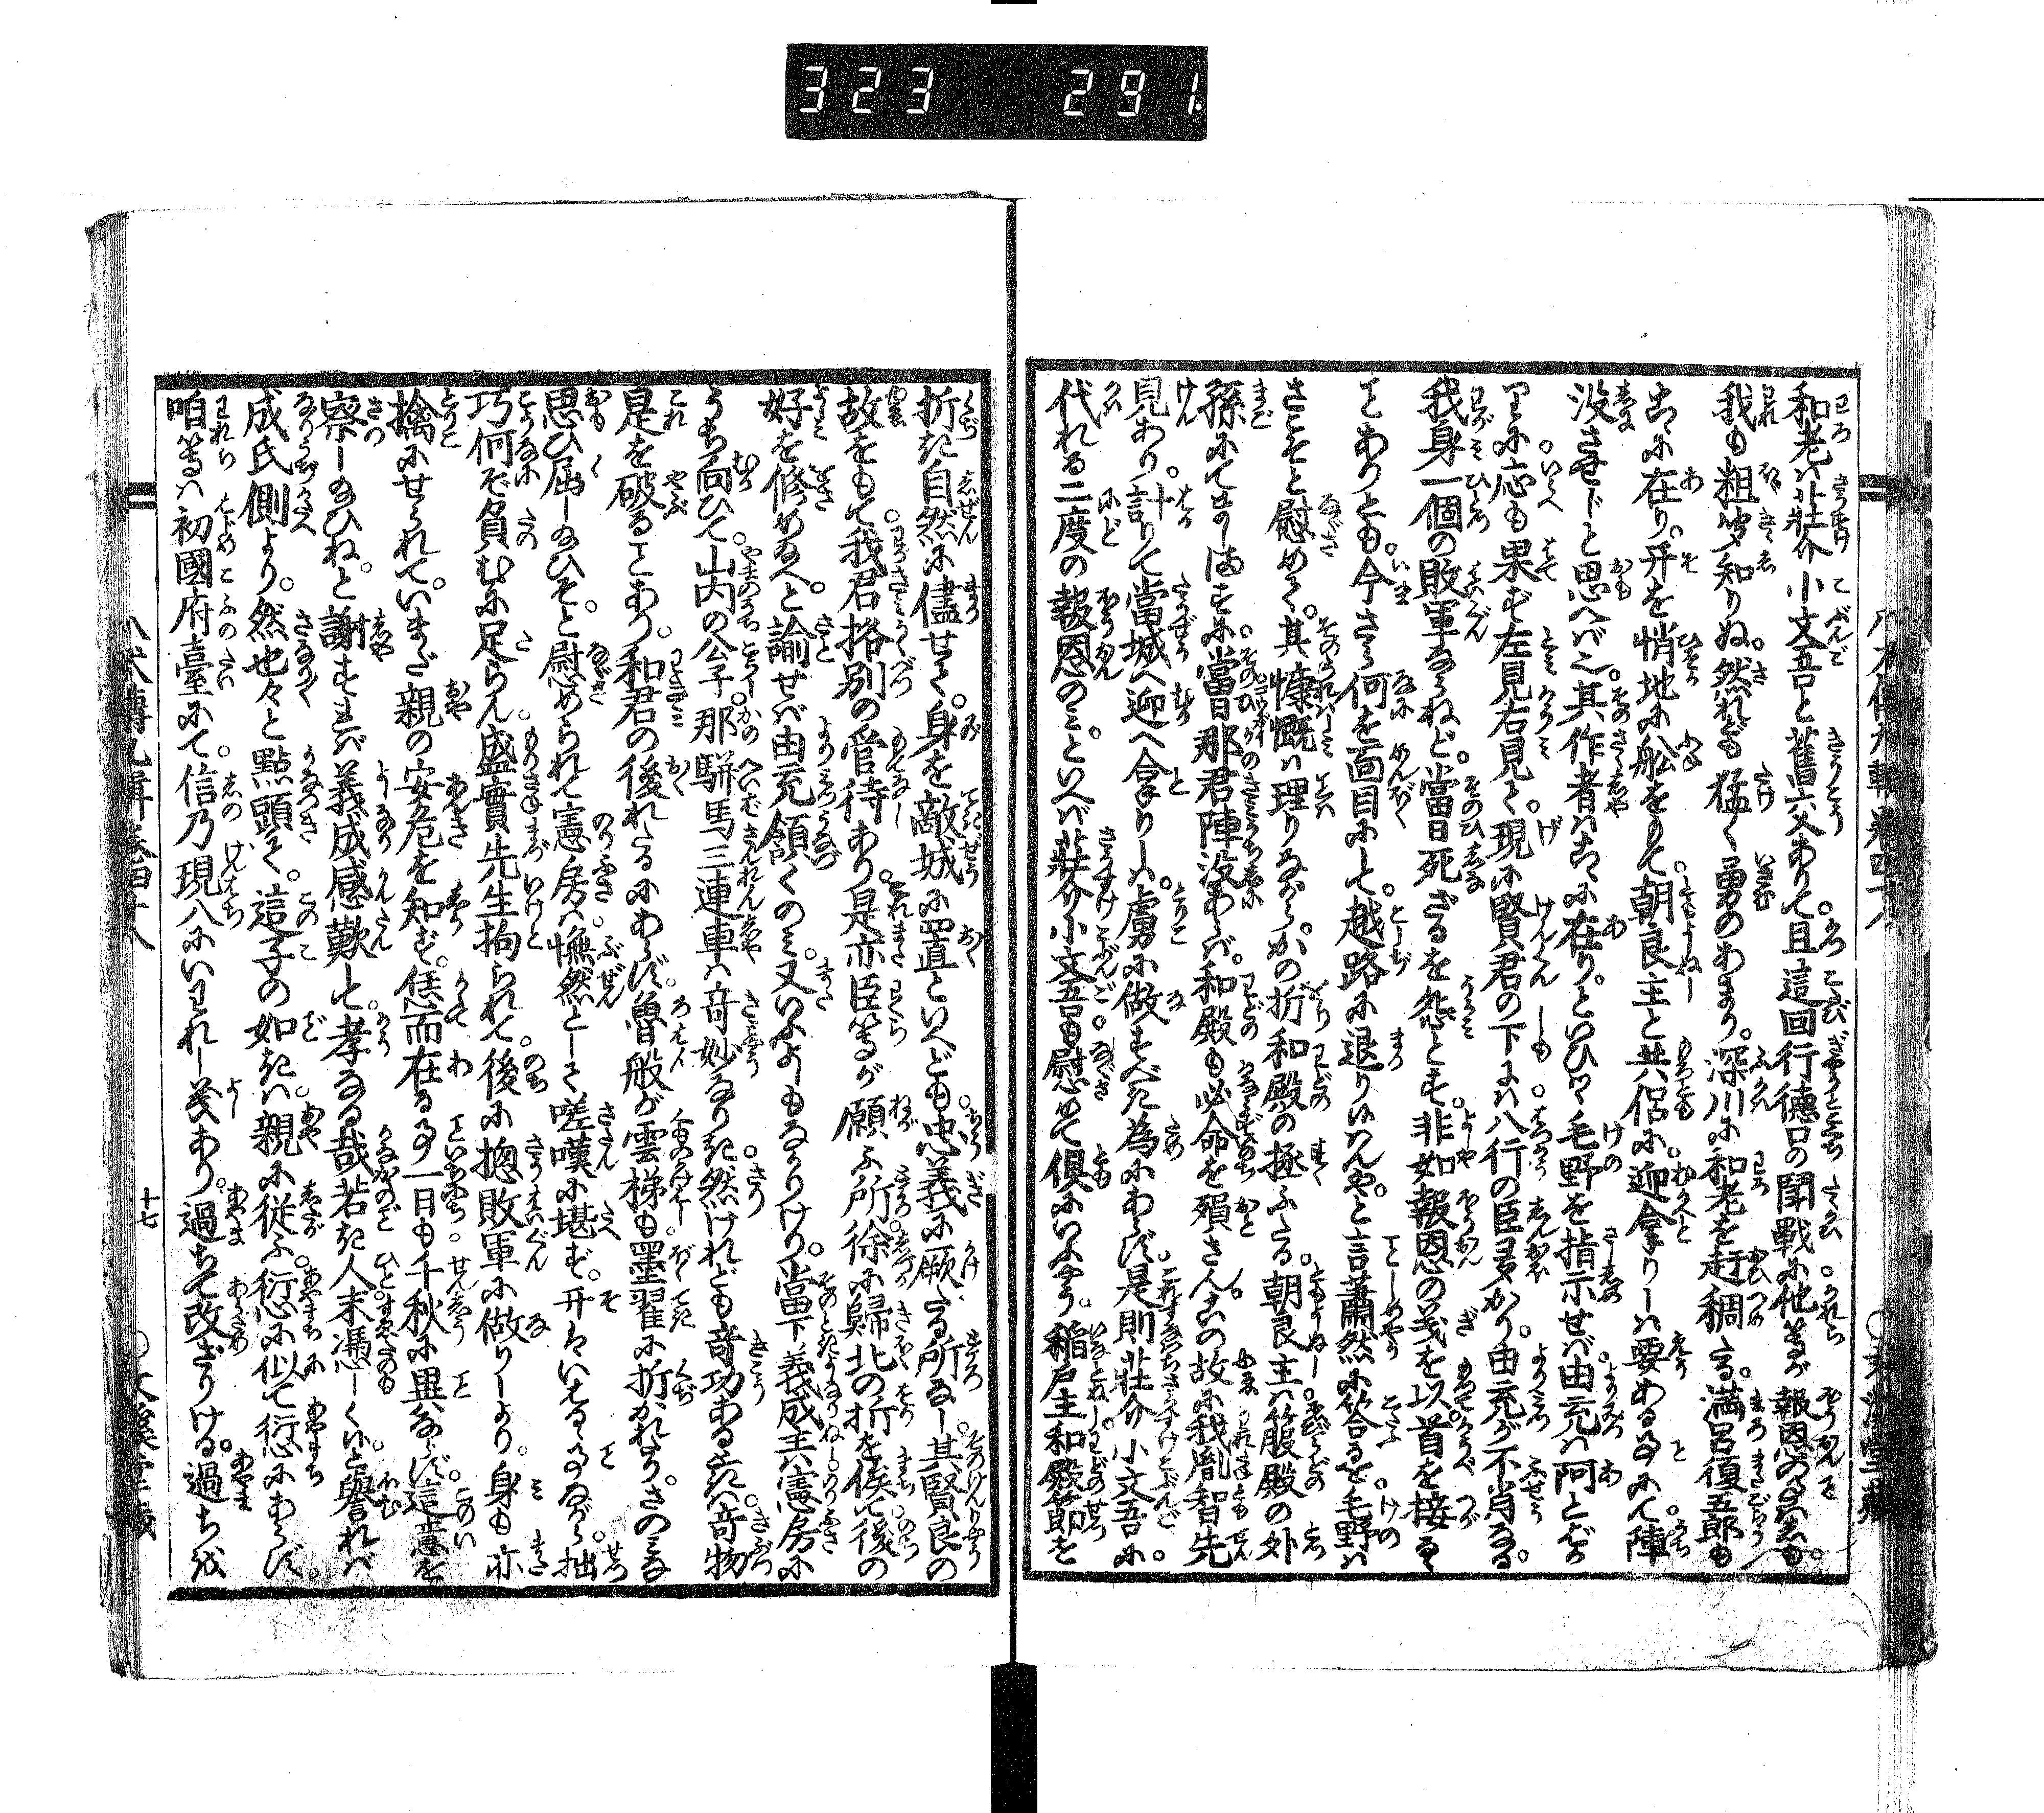 323 291.
和老ハ莊介小文吾と舊六父ありて且這回行德口の鬪戰に他等が報恩の異も。
我も粗歩知りぬ。然れども猛く勇のあまり。深川に和老を赶稠たる。滿呂復五郎も
こゝに在り。开を悄地に舩をもて。朝良主と共侶に。迎拿りしハ要ある事にて。陣
沒させじと思へバ也。其作者ハこゝに在り。といひつゝ毛野を指示せバ由充ハ阿とばか
りに。應も果ず左見右見て。現に賢君の下にハ八行の臣多かり。由充が不肖なる。
我身一個の敗軍ならねど。當日死ざるを怨とす。非如報恩の義を以首を接るゝ
ことありとも。今さら何を面目にして。越路に退りいんや。と言肅然に答るを毛野ハ
さこそと慰めて。其慷慨ハ理りながら。かの折和殿の拯ふたる。朝良主ハ箙殿の外
孫にてをハしまさずや。當日那君陣沒あらバ。和殿も必命を殞さん。この故に我胤智先
見あり。計りて當城へ迎へ拿りしハ。虜に做すべき為にあらず。是則莊介小文吾に。
代れる二度の報恩のミ。といへバ莊介小文吾も慰めて俱にいふやう。稲戶主和殿節を
折き自然に儘せて。身を敵城に置といへども。忠義に厥たる所なし。其賢良の
故をもて。我君挌別の管待あり。是亦臣等が願ふ所。徐に歸北の折を俟て。後の
好を修めなへ。と諭せバ由充頷くのミ。又いふよしもなかりけり。當下義成主ハ憲房に
うち向ひて。山内の公子。那駢馬三連車ハ竒妙なりき。然けれども竒功あるときハ。竒物
是を破ることあり。和君の後れたるにあらず。魯般が雲梯も墨翟に折かれにき。さのミな
思ひ屈し給ひそ。と慰められて憲房ハ。憮然として嗟嘆に堪ず。开ハいはるゝ事ながら。拙
巧何ぞ負むに足らん。盛實先生拘られて。後に摠敗軍に做りしより。身も亦
擒にせられて。いまだ親の安危を知ず。恁而在る事一日も。千秋に異ならず。這意を
察し給ひね。と謝すれバ義成感歎して。孝なる哉若き人。末憑しくハと譽れバ
成氏側より。然也々々と點頭て。這子の如きハ。親に從ふ。衍に似て衍にあらず。
咱等ハ初國府臺にて。信乃現八にいはれし義あり。過ちて改ざりける。過ちハ
八犬傳九輯卷四十八
十七